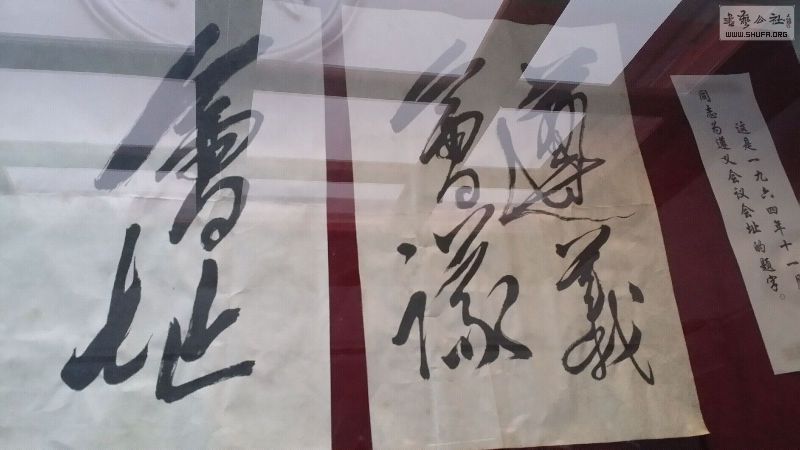 遵义
會議
會址
这是一九六四年十一
同志为遵义会议会址的题字。
書藝公社
WWW.SHUFA.ORG